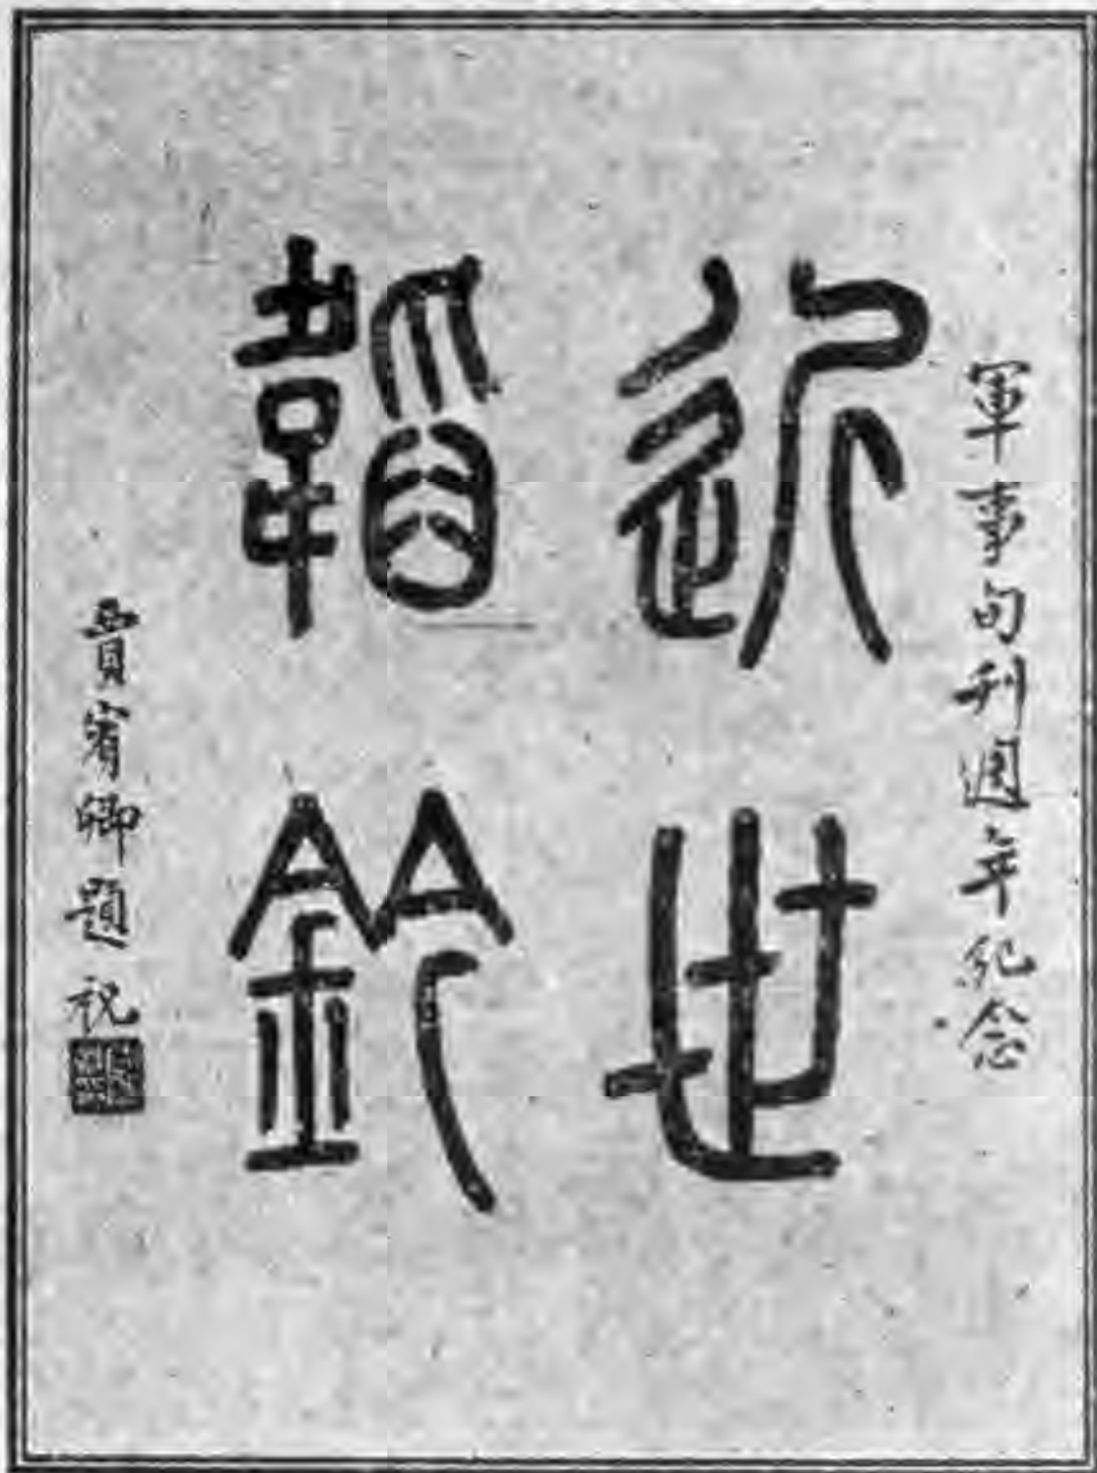 軍事旬刊週年紀念
近世
韜鈐
賈賓卿題祝